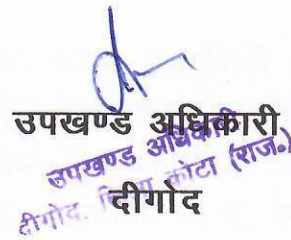 उपखण्ड अधिकारी
उपखण्ड अधिकारी
दीगोद, जिला कोटा (राज०)
दीगोद